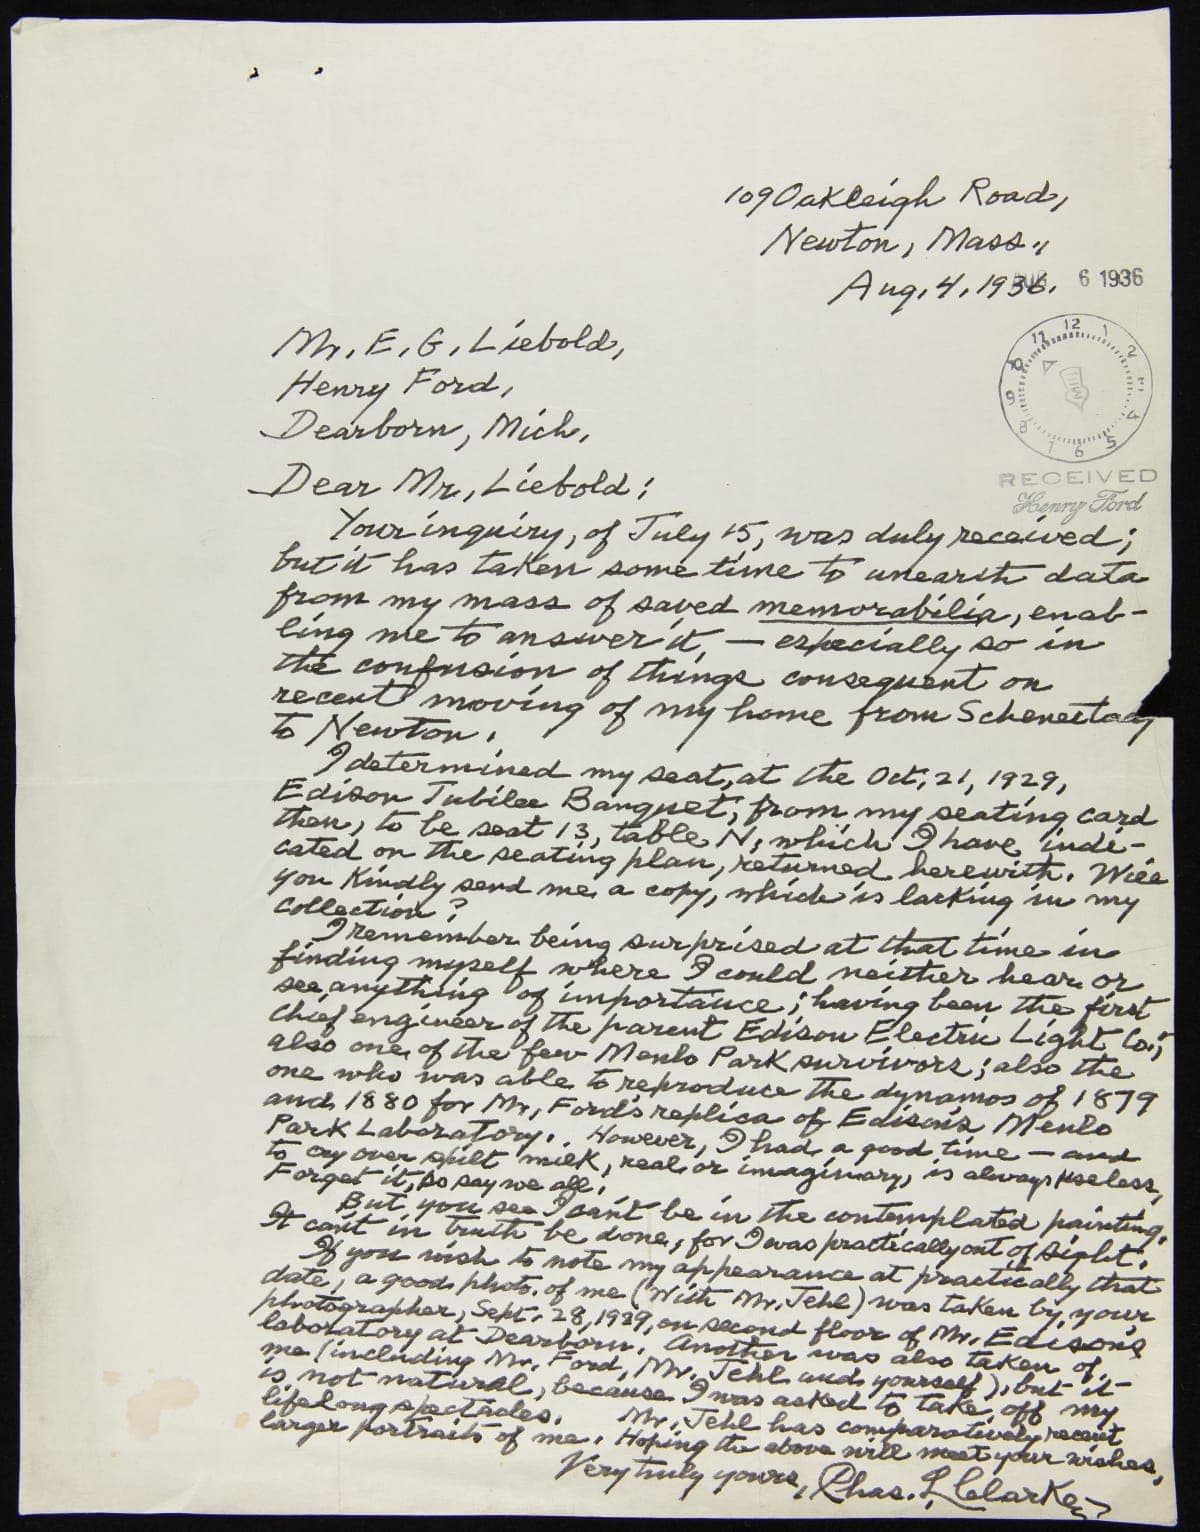 109 Oakleigh Road,
Newton, Mass.,
Aug. 4, 1936.
6 1936
12 1 2 3 4 5 6 7 8 9 10 11
RECEIVED
Henry Ford
Mr. E. G. Liebold,
Henry Ford,
Dearborn, Mich.
Dear Mr. Liebold:
Your inquiry, of July 15, was duly received;
but it has taken some time to unearth data
from my mass of saved memorabilia, enab-
ling me to answer it, — especially so in
the confusion of things consequent on
recent moving of my home from Schenectady
to Newton.
I determined my seat, at the Oct. 21, 1929,
Edison Jubilee Banquet, from my seating card
then, to be seat 13, table N, which I have indi-
cated on the seating plan, returned herewith. Will
you kindly send me a copy, which is lacking in my
collection?
I remember being surprised at that time in
finding myself where I could neither hear or
see anything of importance; having been the first
chief engineer of the parent Edison Electric Light Co.;
also one of the few Menlo Park survivors; also the
one who was able to reproduce the dynamos of 1879
and 1880 for Mr. Ford's replica of Edison's Menlo
Park Laboratory. However, I had a good time — and
to cry over spilt milk, real or imaginary, is always useless,
Forget it, so say we all.
But, you see I can't be in the contemplated painting.
It can't in truth be done, for I was practically out of sight.
If you wish to note my appearance at practically that
date, a good photo. of me (with Mr. Jehl) was taken by your
photographer, Sept. 28, 1929, on second floor of Mr. Edison's
laboratory at Dearborn. Another was also taken of
me (including Mr. Ford, Mr. Jehl and yourself), but it
is not natural, because I was asked to take off my
lifelong spectacles. Mr. Jehl has comparatively recent
larger portraits of me. Hoping the above will meet your wishes,
Very truly yours, Chas. L. Clarke